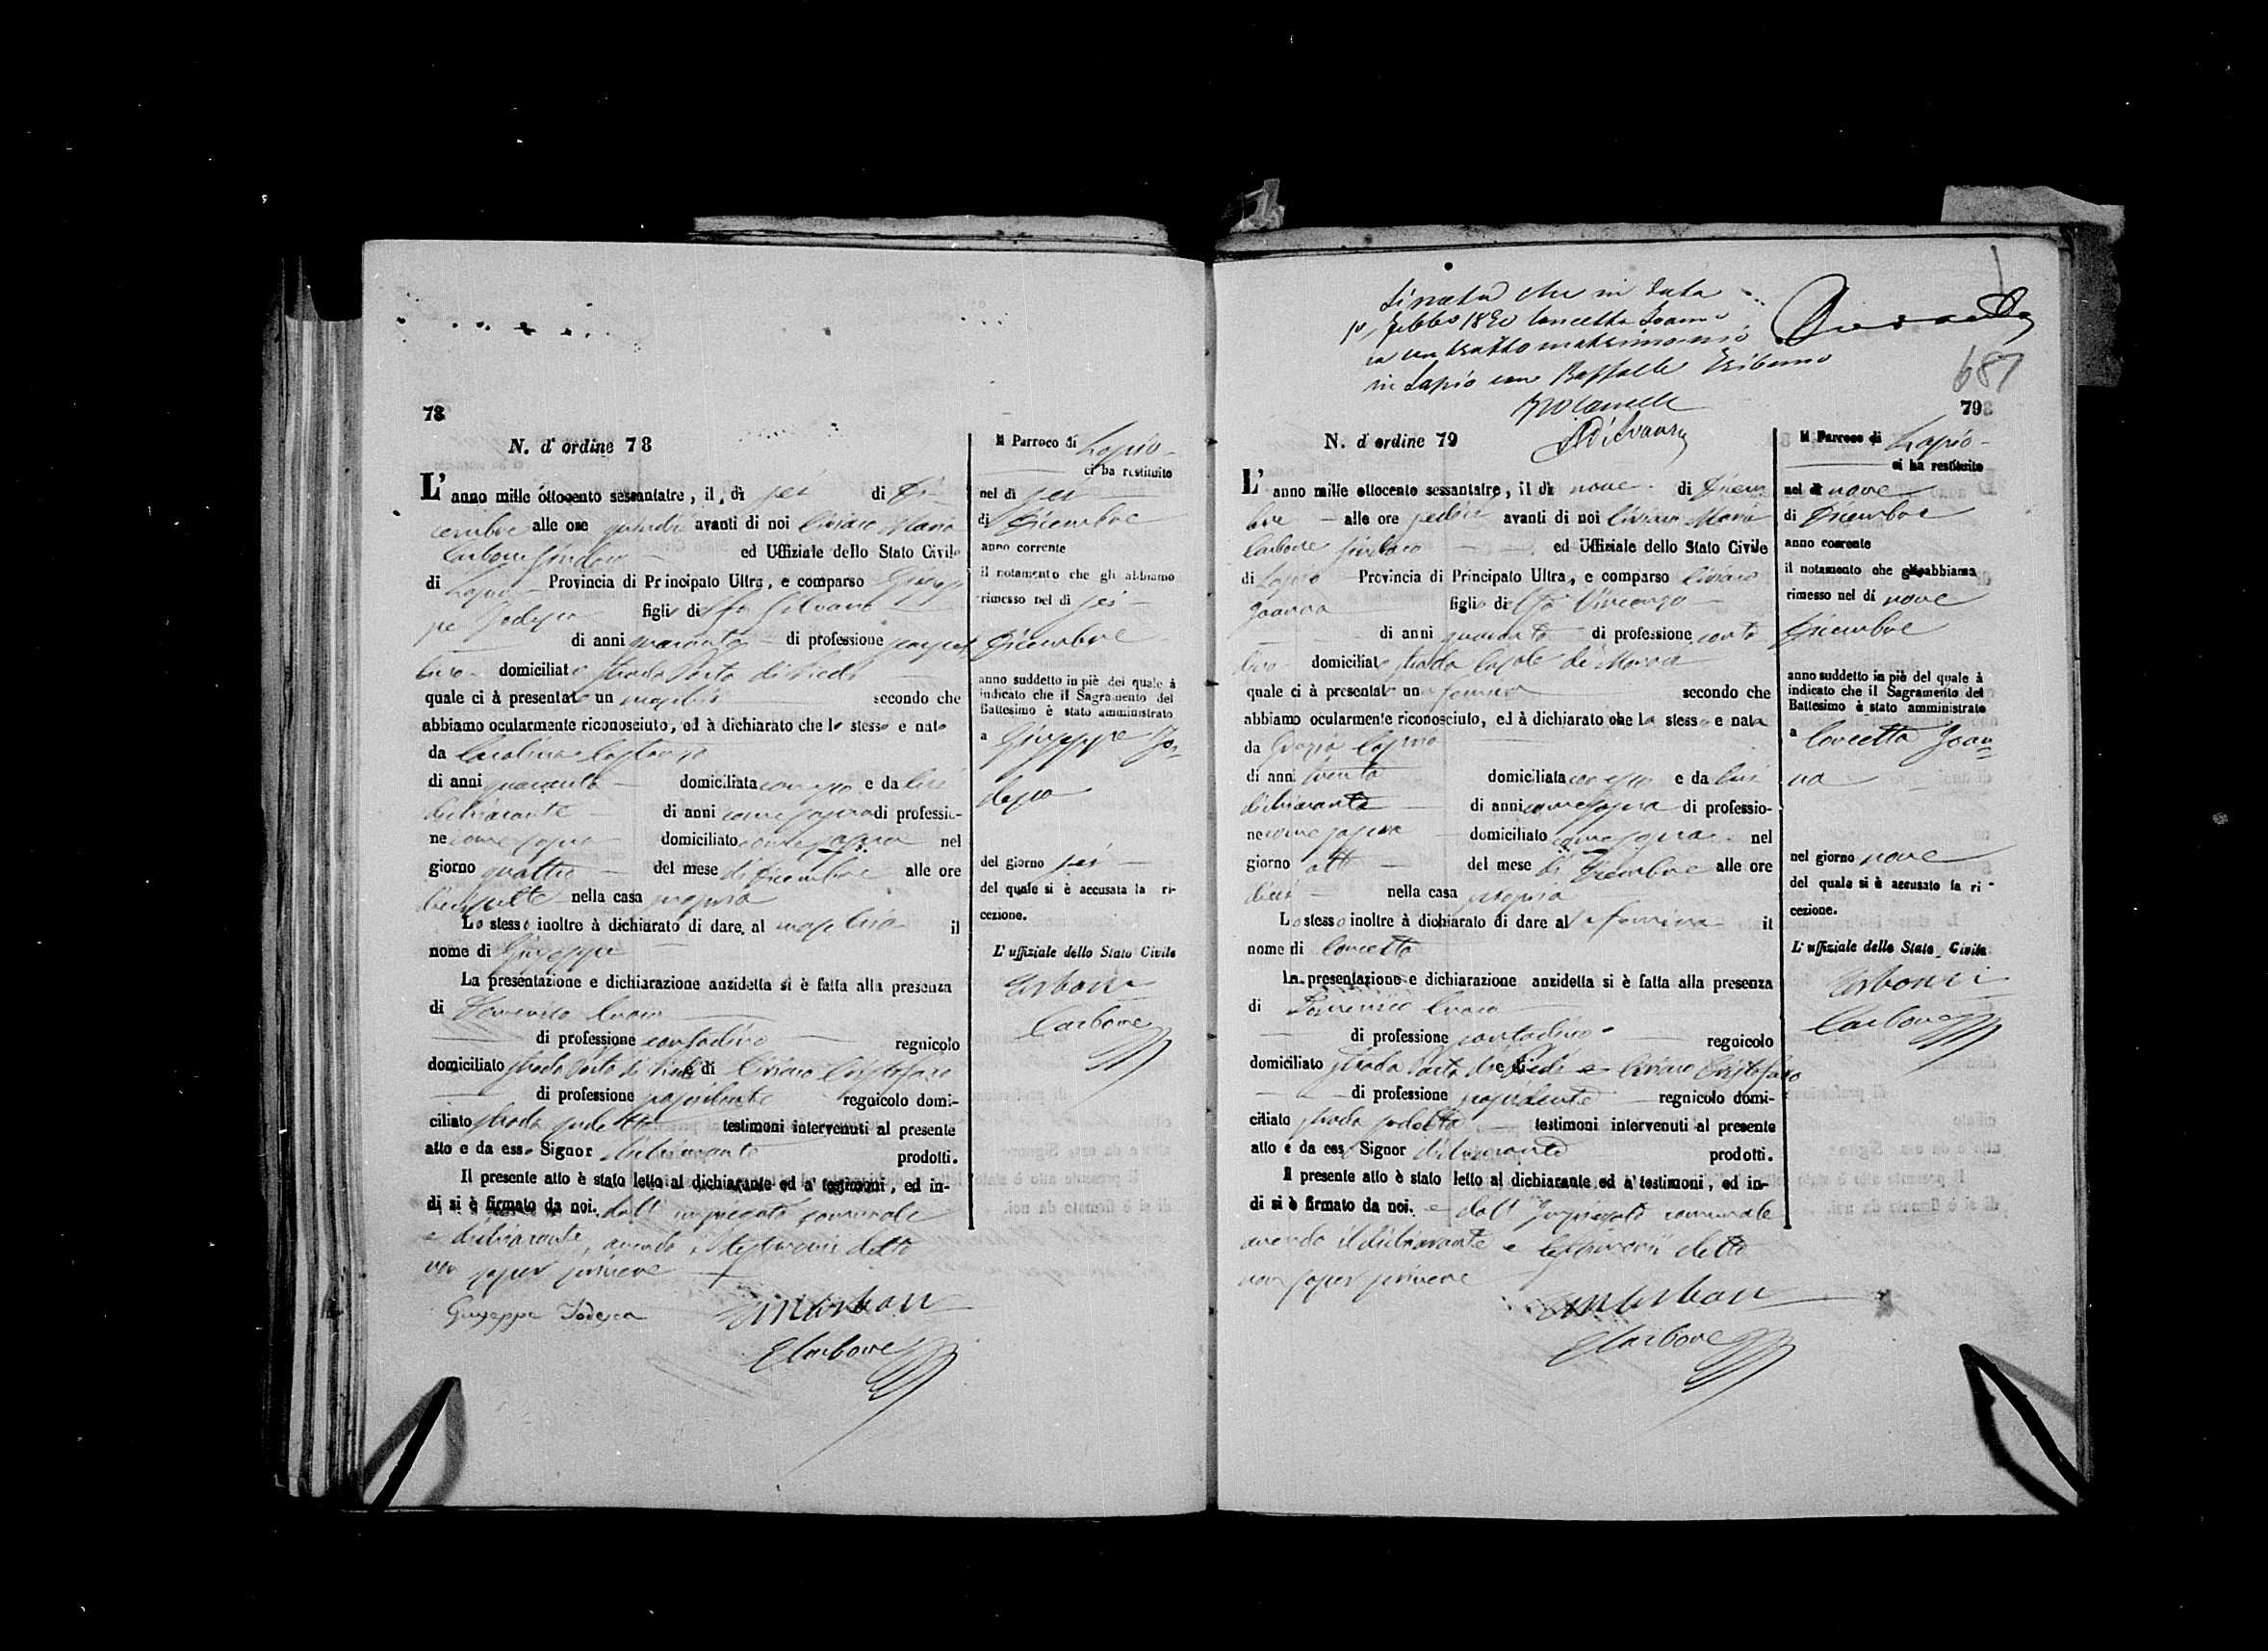 78
N. d'ordine 78
L'anno mille ottocento sessantatre, il dì sei di Di-
cembre alle ore quindici avanti di noi Ciriaco Maria
Carbone Sindaco ed Uffiziale dello Stato Civile
di Lapio Provincia di Principato Ultra, e comparso Giusep
pe Todesca figlio di fu Silvano
di anni quaranta di professione
domiciliato strada Porta di Piedi
quale ci à presentato un maschio secondo che
abbiamo ocularmente riconosciuto, ed à dichiarato che lo stesso e nato
da Carolina
di anni quaranta domiciliata con esso e da lui
dichiarante di anni come sopra di professio-
ne come sopra domiciliato come sopra nel
giorno quattro del mese di Dicembre alle ore
diciasette nella casa propria
Lo stesso inoltre à dichiarato di dare al maschio il
nome di Giuseppe
La presentazione e dichiarazione anzidetta si è fatta alla presenza
di Domenico
di professione contadino regnicolo
domiciliato strada Porta di Piedi e di Ciriaco Cristofaro
di professione possidente regnicolo domi-
ciliato strada sudetta testimoni intervenuti al presente
atto e da esso Signor dichiarante prodotti.
Il presente atto è stato letto al dichiarante ed a' testimoni, ed in-
di si è firmato da noi. dall' impiegato comunale
e dichiarante, avendo i testimoni detto
non saper scrivere
Giuseppe Todesca
Carbone
Il Parroco di Lapio
ci ha restituito
nel dì sei
di Dicembre
anno corrente
il notamento che gli abbiamo
rimesso nel dì sei
Dicembre
anno suddetto in piè del quale à
indicato che il Sagramento del
Battesimo è stato amministrato
a Giuseppe To-
desca
del giorno sei
del quale si è accusata la ri-
cezione.
L'uffiziale dello Stato Civile
Carbone
Si nota che in data
1890 Concetta Joanna
contratto matrimonio
in Lapio con Raffaele
687
79
N. d'ordine 79
L'anno mille ottocento sessantatre, il dì nove di Dicem
bre alle ore sedici avanti di noi Ciriaco Maria
Carbone Sindaco ed Uffiziale dello Stato Civile
di Lapio Provincia di Principato Ultra, e comparso Ciriaco
Joanna figlio di fu Vincenzo
di anni quaranta di professione conta
dino domiciliato strada Casale di
quale ci à presentato una femina secondo che
abbiamo ocularmente riconosciuto, ed à dichiarato che la stessa e nata
da Grazia
di anni trenta domiciliata con esso e da lui
dichiarante di anni come sopra di professio-
ne come sopra domiciliato come sopra nel
giorno otto del mese di Dicembre alle ore
dieci nella casa propria
Lo stesso inoltre à dichiarato di dare alla femina il
nome di Concetta
La presentazione e dichiarazione anzidetta si è fatta alla presenza
di Domenico
di professione contadino regnicolo
domiciliato strada Porta di Piedi e di Ciriaco Cristofaro
di professione possidente regnicolo domi-
ciliato strada sudetta testimoni intervenuti al presente
atto e da esso Signor dichiarante prodotti.
Il presente atto è stato letto al dichiarante ed a' testimoni, ed in-
di si è firmato da noi. e dall' Impiegato comunale
avendo il dichiarante e testimonii detto
non saper scrivere
Carbone
Il Parroco di Lapio
ci ha restituito
nel dì nove
di Dicembre
anno corrente
il notamento che gli abbiamo
rimesso nel dì nove
Dicembre
anno suddetto in piè del quale à
indicato che il Sagramento del
Battesimo è stato amministrato
a Concetta Joan
na
nel giorno nove
del quale si è accusato la ri-
cezione.
L'uffiziale dello Stato Civile
Carbone